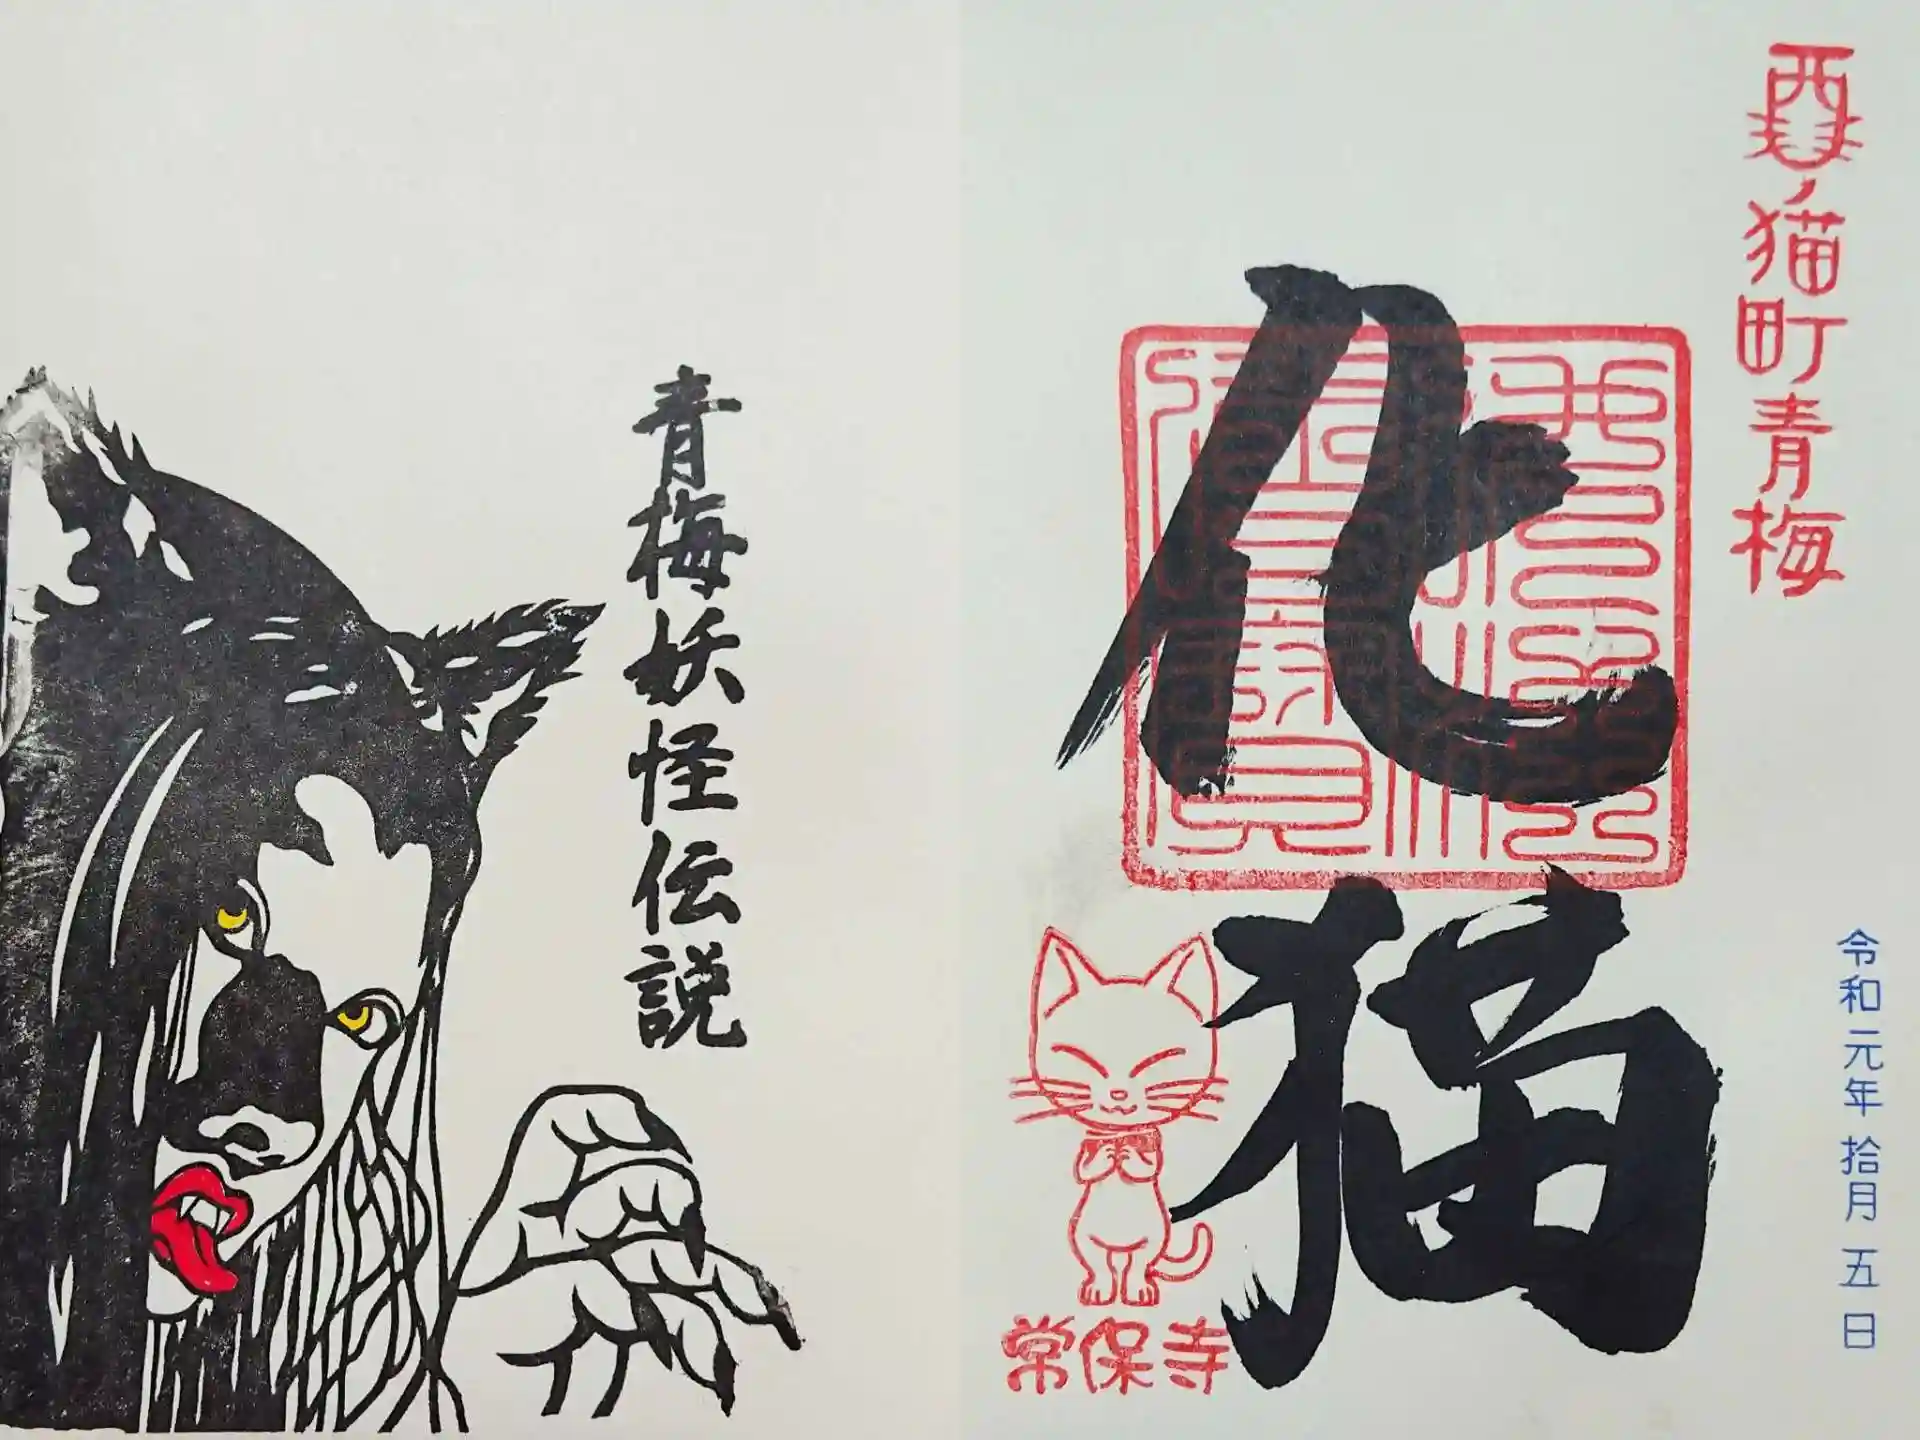 酉ノ猫町青梅
化猫
令和元年拾月五日
常保寺
青梅妖怪伝説